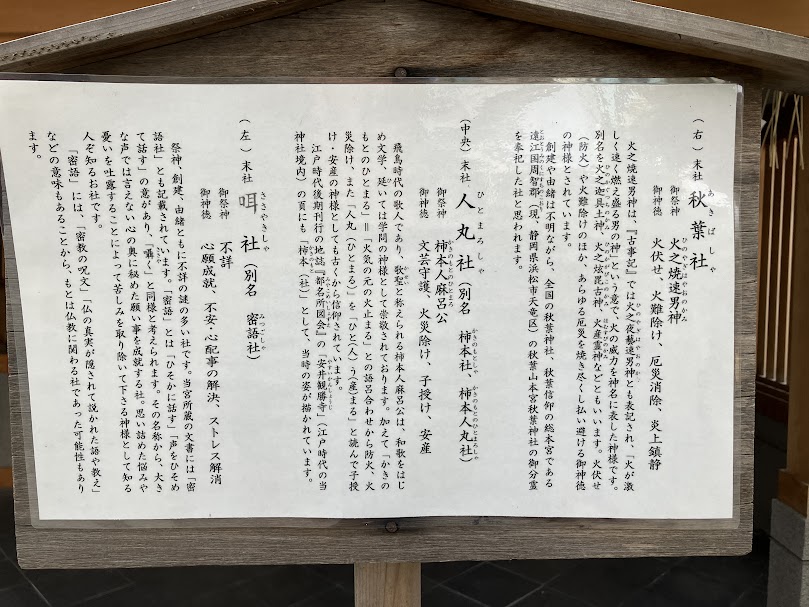 （右）末社 秋葉社
あきばしゃ
御祭神 火之焼速男神
御神徳 火伏せ、火難除け、厄災消除、炎上鎮静
火之焼速男神は、『古事記』では火之夜藝速男神とも表記され、「火が激
しく速く燃え盛る男の神」という意で、火の威力を神名に表した神様です。
別名を火之迦具土神、火之炫毘古神、火産霊神などともいいます。火伏せ
（防火）や火難除けのほか、あらゆる厄災を焼き尽くし払い避ける御神徳
の神様とされています。
創建や由緒は不明ながら、全国の秋葉神社、秋葉信仰の総本宮である
遠江国周智郡（現、静岡県浜松市天竜区）の秋葉山本宮秋葉神社の御分霊
を奉祀した社と思われます。
（中央）末社 人丸社（別名 柿本社、柿本人丸社）
ひとまろしゃ
御祭神 柿本人麻呂公
かきのもとのひとまろ
御神徳 文芸守護、火災除け、子授け、安産
飛鳥時代の歌人であり、歌聖と称えられる柿本人麻呂公は、和歌をはじ
め文学、延いては学問の神様として崇敬されております。加えて「かきの
もとのひとまる」＝「火気の元の火止まる」との語呂合わせから防火、火
災除け、また「人丸（ひとまる）」を「ひと（人）う（産）まる」と読んで子授
け・安産の神様としても古くから信仰されています。
江戸時代後期刊行の地誌『都名所図会』の「安井観勝寺」（江戸時代の当
神社境内）の頁にも「柿本（社）」として、当時の姿が描かれています。
（左）末社 咡社（別名 密語社）
ささやきしゃ
みつごしゃ
御祭神 不詳
御神徳 心願成就、不安・心配事の解決、ストレス解消
祭神、創建、由緒ともに不詳の謎の多い社です。当宮所蔵の文書には「密
語社」とも記載されています。「密語」とは「ひそかに話す」「声をひそめ
て話す」の意があり、「囁く」と同様と考えられます。その名称から、大き
な声では言えない心の奥に秘めた願い事を成就する社。思い詰めた悩みや
憂いを吐露することによって苦しみを取り除いて下さる神様として知る
人ぞ知るお社です。
「密語」には、「密教の呪文」「仏の真実が隠されて説かれた語や教え」
などの意味もあることから、もとは仏教に関わる社であった可能性もあり
ます。